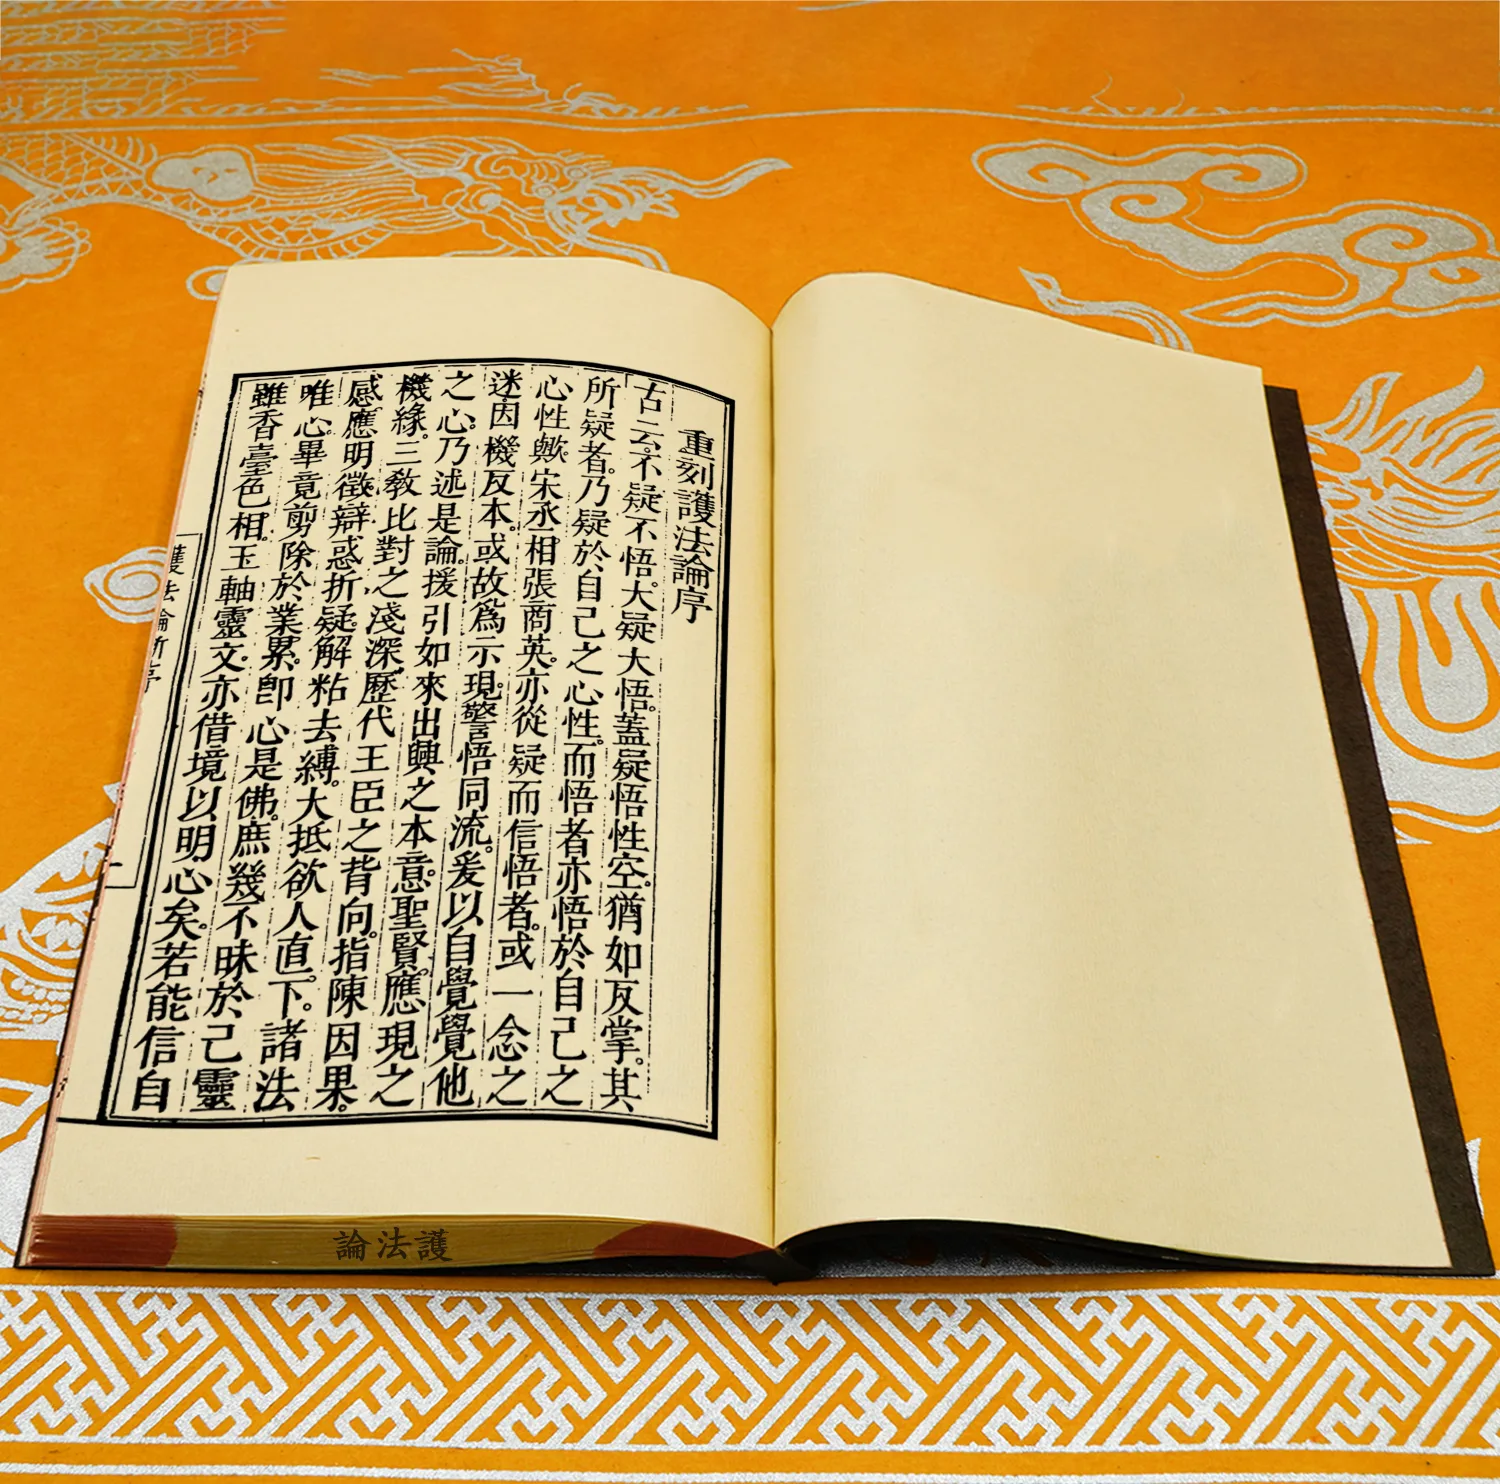 重刻護法論序
古云。不疑不悟。大疑大悟。蓋疑悟性空。猶如反掌。其
所疑者。乃疑於自己之心性。而悟者亦悟於自己之
心性歟。宋丞相張商英。亦從疑而信悟者。或一念之
迷。因機反本。或故爲示現。警悟同流。爰以自覺覺他
之心。乃述是論。援引如來出興之本意。聖賢應現之
機緣。三教比對之淺深。歷代王臣之背向。指陳因果。
感應明徵。辯惑折疑。解粘去縛。大抵欲人直下。諸法
唯心。畢竟剪除於業累。卽心是佛。庶幾不昧於己靈
雖香臺色相。玉軸靈文。亦借境以明心矣。若能信自
護法論新序
一
論法護